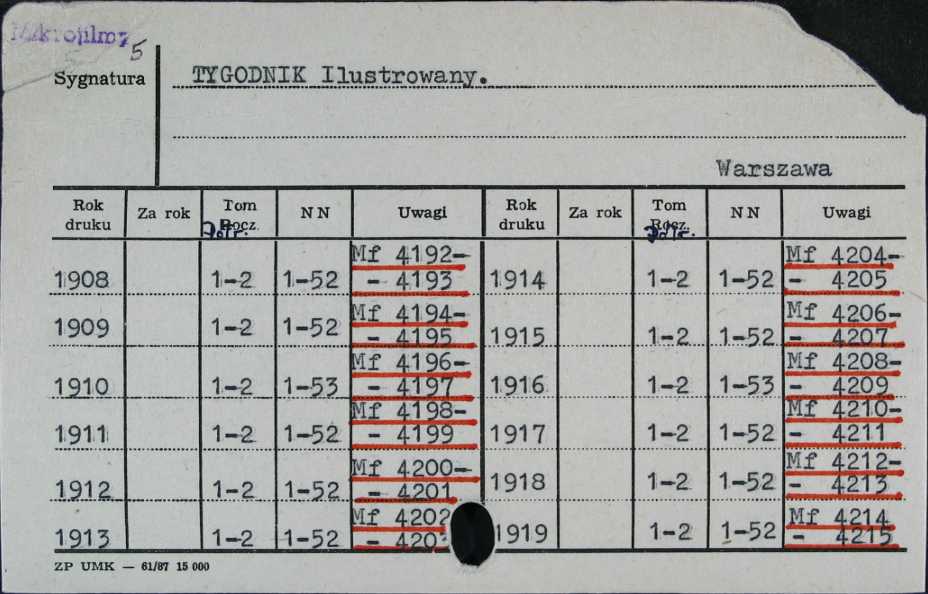 Mikrofilmy
5
Sygnatura TYGODNIK Ilustrowany.
Warszawa
Rok druku Za rok Tom Rocz. NN Uwagi Rok druku Za rok Tom Rocz. NN Uwagi
Półr. Półr.
1908 1-2 1-52 Mf 4192- - 4193 1914 1-2 1-52 Mf 4204- - 4205
1909 1-2 1-52 Mf 4194- - 4195 1915 1-2 1-52 Mf 4206- - 4207
1910 1-2 1-53 Mf 4196- - 4197 1916 1-2 1-53 Mf 4208- - 4209
1911 1-2 1-52 Mf 4198- - 4199 1917 1-2 1-52 Mf 4210- - 4211
1912 1-2 1-52 Mf 4200- - 4201 1918 1-2 1-52 Mf 4212- - 4213
1913 1-2 1-52 Mf 4202 - 1919 1-2 1-52 Mf 4214 - 4215
ZP UMK — 61/87 15 000